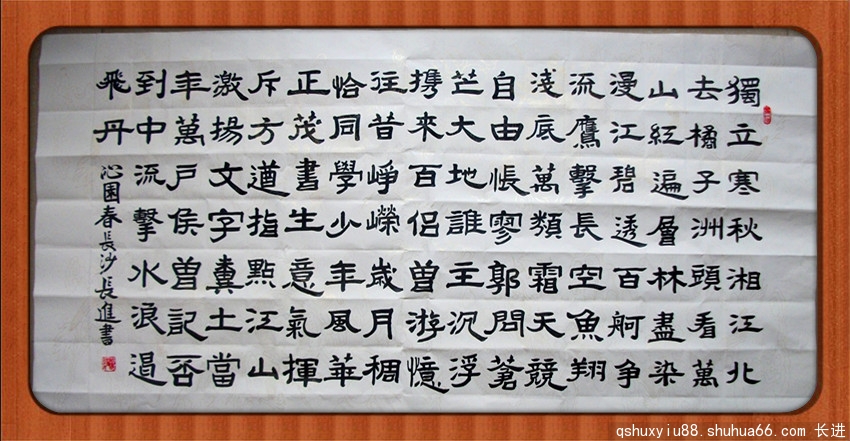 獨立寒秋湘江北
去橘子洲頭看萬
山紅遍層林盡染
漫江碧透百舸争
流鷹擊長空魚翔
淺底萬類霜天競
自由悵寥郭問蒼
芒大地誰主沉浮
携來百侣曾游憶
往昔崢嶸歲月稠
恰同學少年風華
正茂書生意氣揮
斥方遒指點江山
激揚文字糞土當
年萬户侯曾記否
到中流擊水浪遏
飛丹 沁園春長沙長進書
qshuxyiu88.shuhua66.com 长进